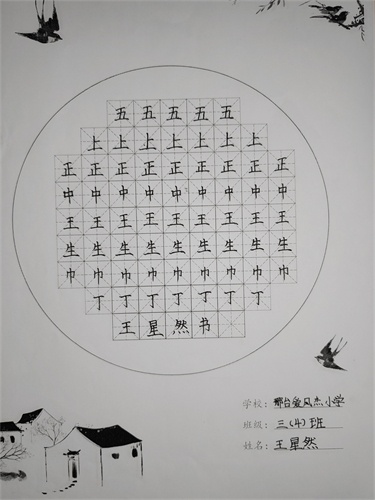 五五五五五
上上上上上上上
正正正正正正正正正
中中中中中中中中中
王王王王王王王王王
生生生生生生生生生
巾巾巾巾巾巾巾巾巾
丁丁丁丁丁丁丁
王星然书
学校：邢台爱风杰小学
班级：三(4)班
姓名：王星然